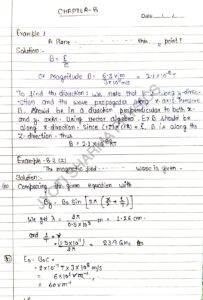 CHAPTER-8
Date
Example 1
A Plane ------ thin. ---- point?
Solution:-
B = E/C
Or Magnitude B = 6.3 v/m / 3×10⁸ m/s = 2.1×10⁻⁸ T
To find the direction: we note that E is along y-direc-
-tion and the wave propagates along x-axis. Therefore
B should be in a direction perpendicular to both x-
and y- axis. Using vector algebra. E×B should be
along x-direction. Since (+ĵ)×(+k̂) = î, B is along the
Z-direction. Thus
B = 2.1×10⁻⁸ k̂T
Example-8.2 (2)
The magnetic field ------ wave is given-
Solution:-
(a) Comparing the given equation with
By = B₀ sin [2π (x/λ + t/T)]
We get λ = m = 1.26 cm.
and 1/T = = 23.9 GHz
E₀ = B₀C =
2×10⁻⁷ × 3×10⁸ m/s
= 6×10¹ Vm⁻¹
= 60 Vm⁻¹
JYOTI SHARMA